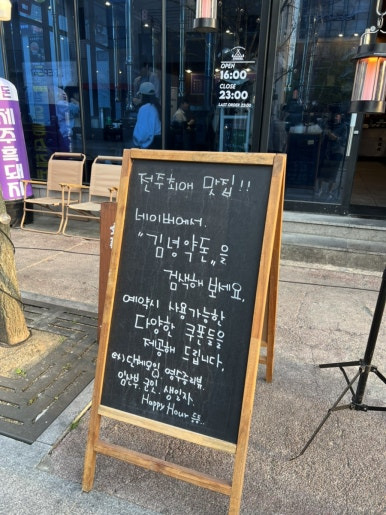 OPEN
16:00
CLOSE
23:00
LAST ORDER 22:00
제주흑돼지
전주최애 맛집!!
네이버에서.
"김녕약돈"을
검색해 보세요.
예약시 사용가능한
다양한 쿠폰들을
제공해 드립니다.
ex) 단체모임, 영수증리뷰.
임산부. 군인. 생일자.
Happy Hour 등등..